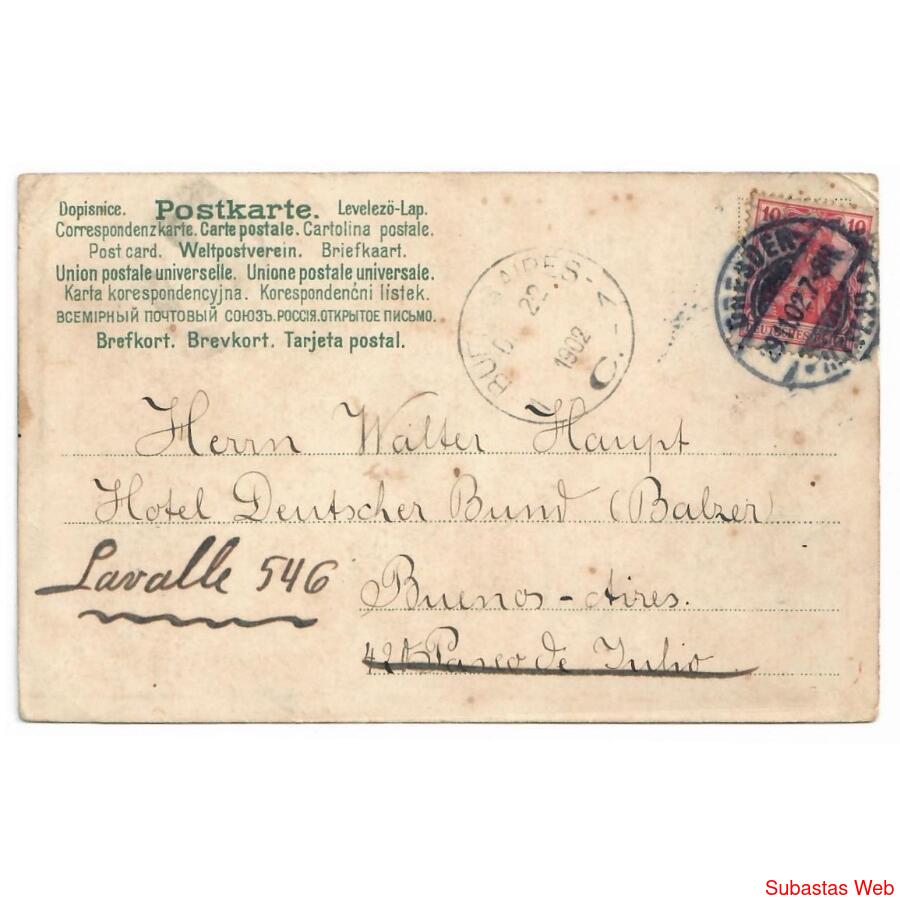 Dopisnice. Postkarte. Levelező-Lap.
Correspondenzkarte. Carte postale. Cartolina postale.
Post card. Weltpostverein. Briefkaart.
Union postale universelle. Unione postale universale.
Karta korespondencyjna. Korespondenčni listek.
ВСЕМІРНЫЙ ПОЧТОВЫЙ СОЮЗЪ. РОССІЯ. ОТКРЫТОЕ ПИСЬМО.
Brefkort. Brevkort. Tarjeta postal.
10 10
DEUTSCHES REICH
DRESDEN
BUENOS AIRES
22
1902
C.
Herrn Walter Haupt
Hotel Deutscher Bund (Balzer)
Lavalle 546
Buenos-Aires.
Paseo de Julio
Subastas Web